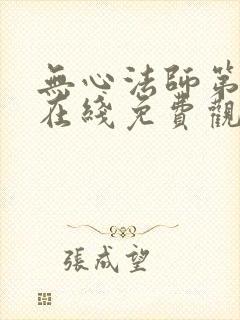 無心法師第
在綫免費觀
張成望